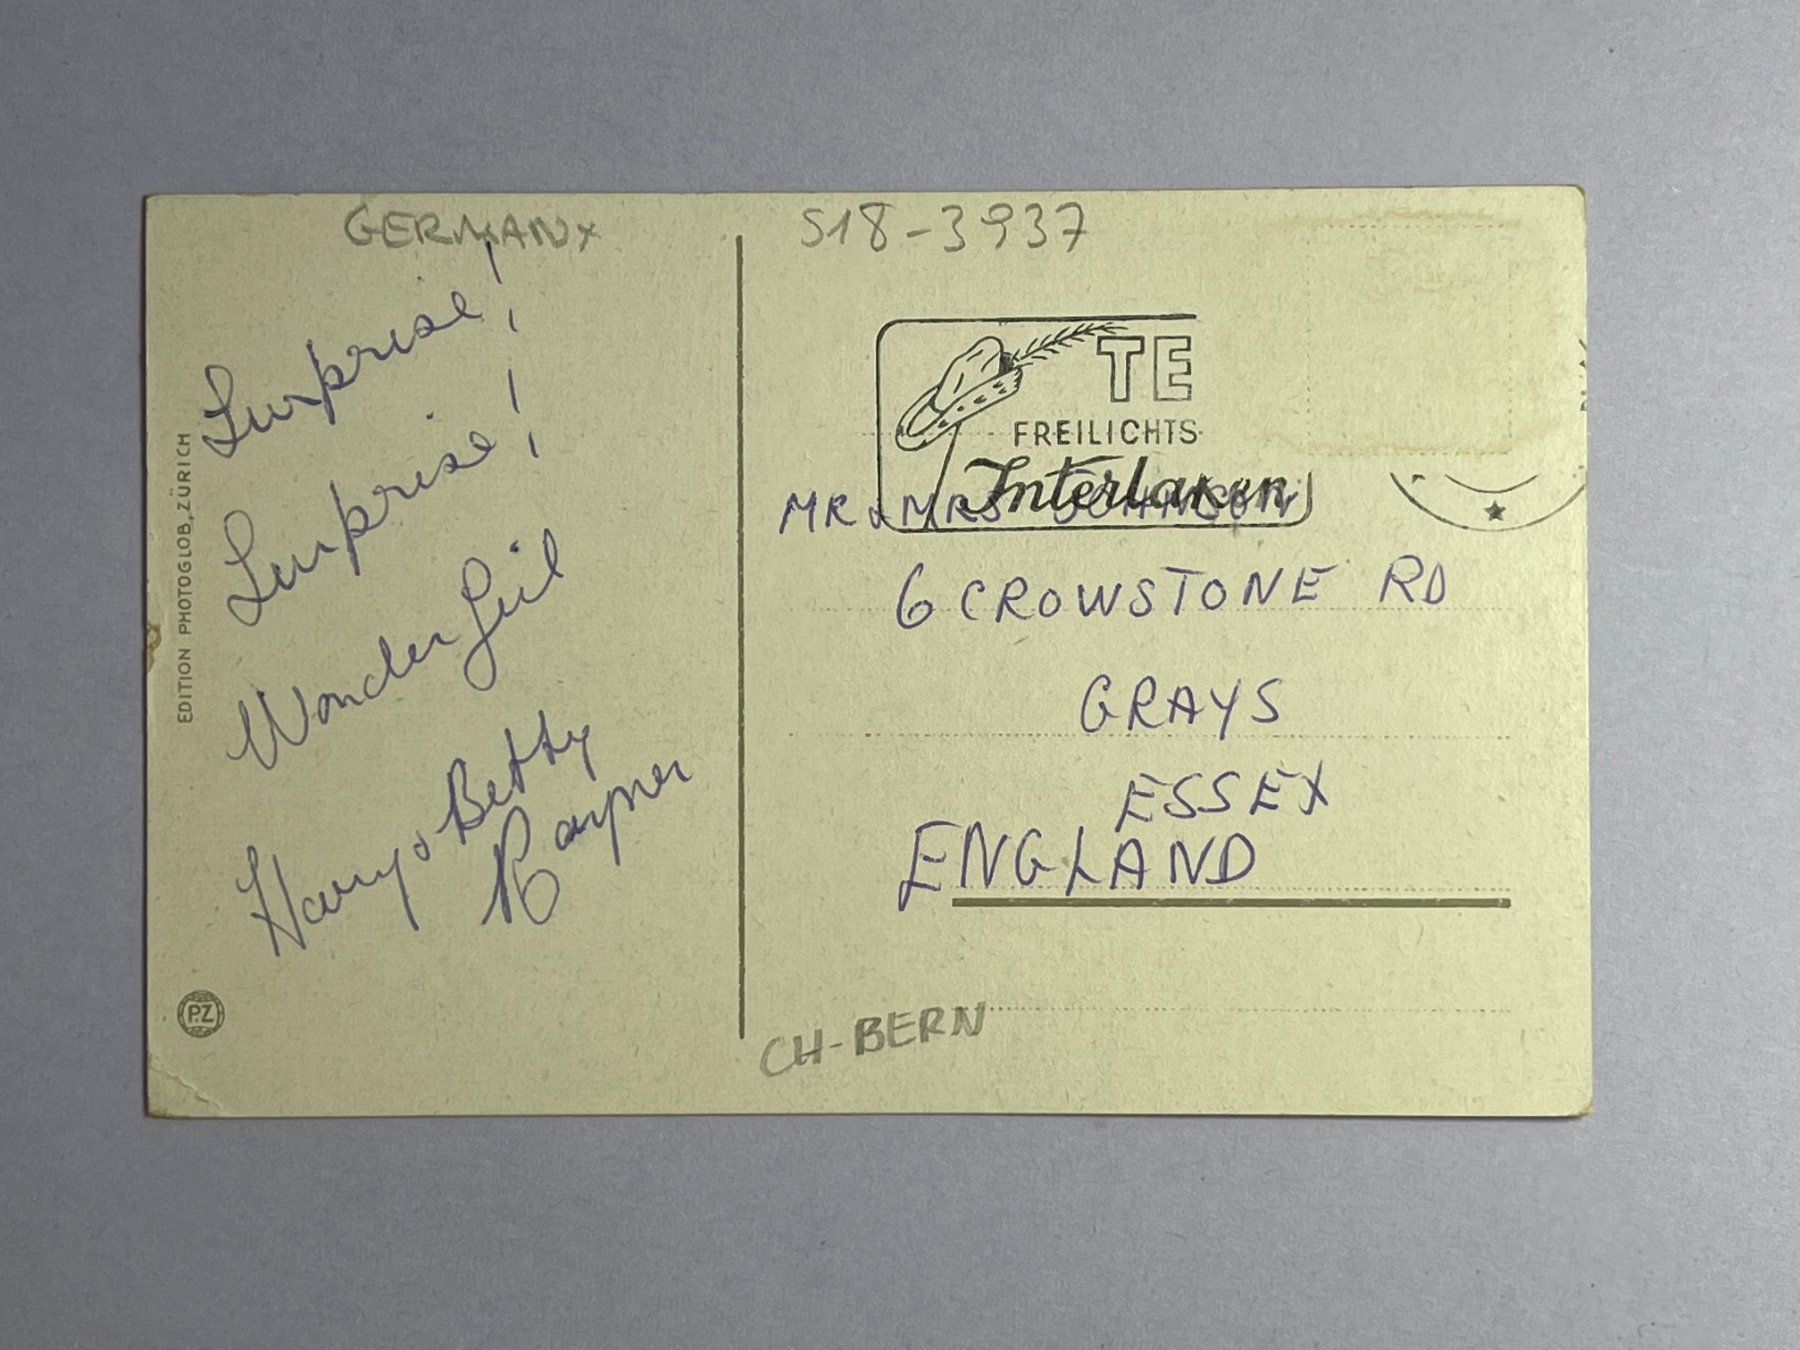 GERMANY
S18-3937
Surprise!
Surprise!
Wonderful
Harry & Betty
Rayner
EDITION PHOTOGLOB, ZÜRICH
P.Z
TE
FREILICHTS
Interlaken
MR & MRS JOHNSON
6 CROWSTONE RD
GRAYS
ESSEX
ENGLAND
CH-BERN